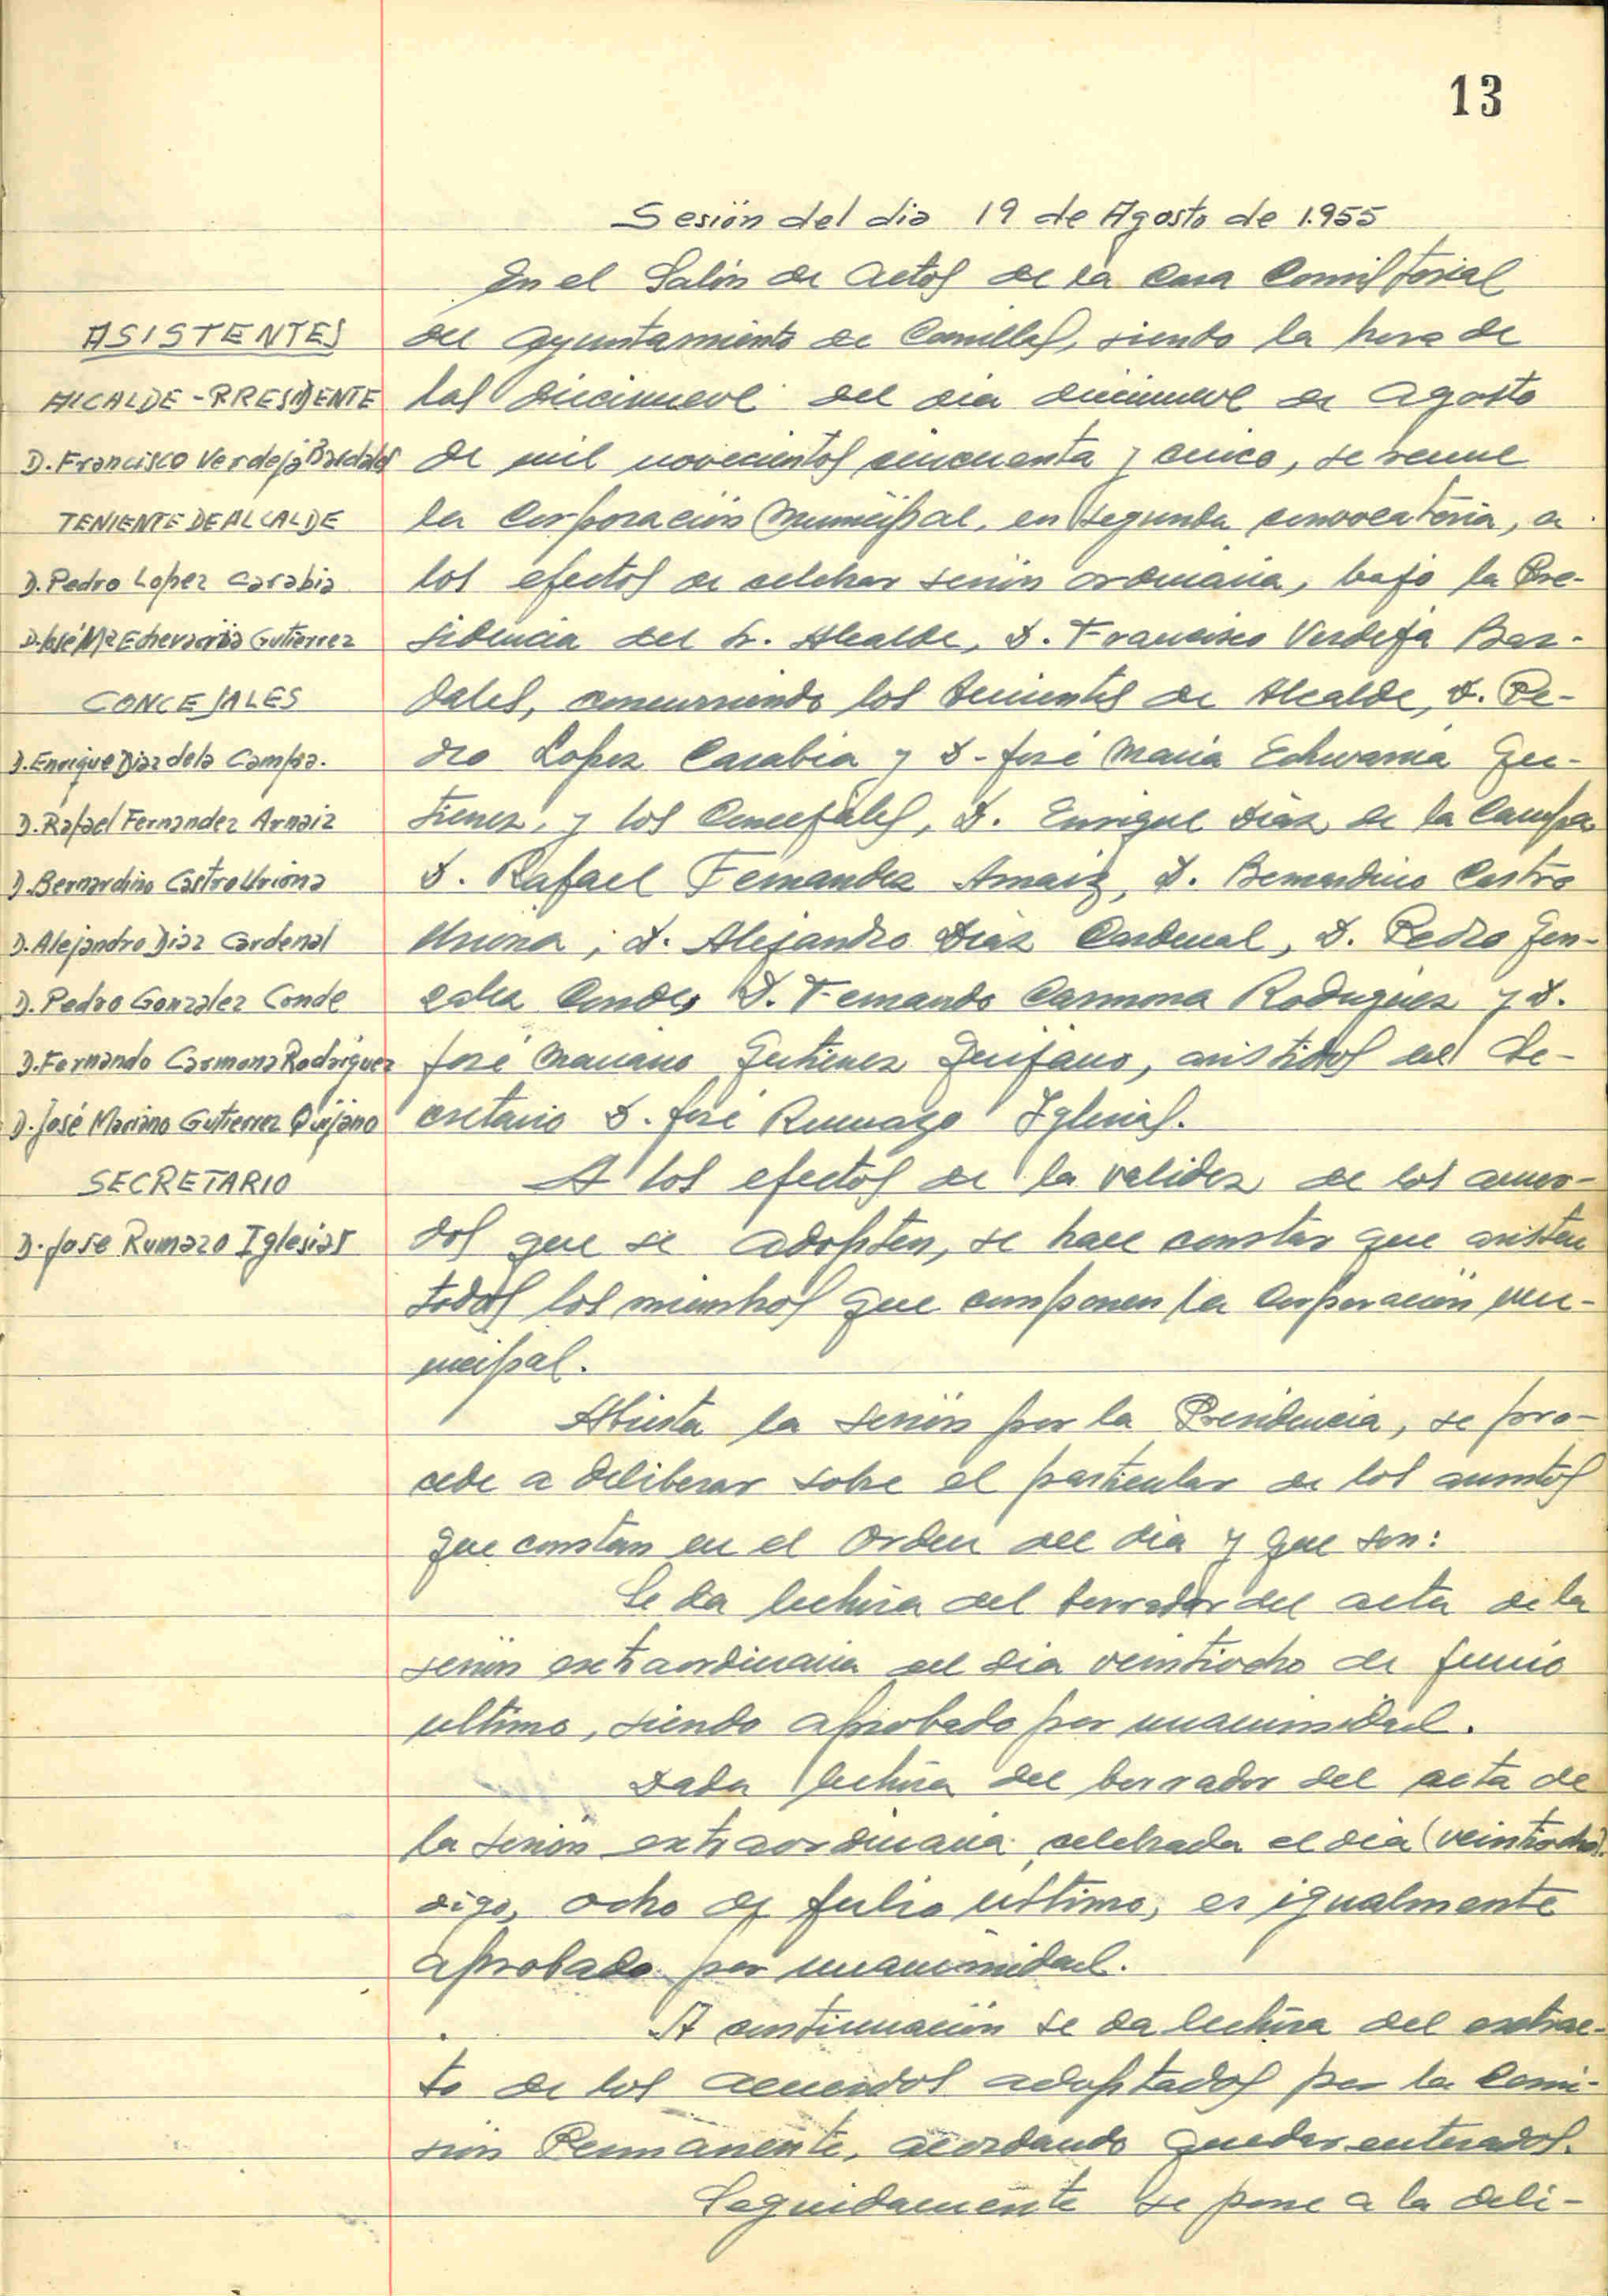 13
Sesión del dia 19 de Agosto de 1.955
ASISTENTES
ALCALDE-PRESIDENTE
D. Francisco Verdeja Bardales
TENIENTE DE ALCALDE
D. Pedro Lopez Carabia
D. José Mª Echevarria Gutierrez
CONCEJALES
D. Enrique Diaz de la Campa.
D. Rafael Fernandez Arnaiz
D. Bernardino Castro Uriona
D. Alejandro Diaz Cardenal
D. Pedro Gonzalez Conde
D. Fernando Carmona Rodriguez
D. José Mariano Gutierrez Quijano
SECRETARIO
D. Jose Rumazo Iglesias
En el Salón de Actos de la Casa Consistorial
del Ayuntamiento de Comillas, siendo la hora de
las diecinueve del dia diecinueve de Agosto
de mil novecientos cincuenta y cinco, se reune
la Corporación Municipal, en segunda convocatoria, a
los efectos de celebrar sesión ordinaria, bajo la Pre-
sidencia del Sr. Alcalde, D. Francisco Verdeja Bar-
dales, concurriendo los Tenientes de Alcalde, D. Pe-
dro Lopez Carabia y D. José Maria Echevarria Gu-
tierrez, y los Concejales, D. Enrique Diaz de la Campa
D. Rafael Fernandez Arnaiz, D. Bernardino Castro
Uriona, D. Alejandro Diaz Cardenal, D. Pedro Gon-
zalez Conde, D. Fernando Carmona Rodriguez y D.
José Mariano Gutierrez Quijano, asistidos del Se-
cretario D. José Rumazo Iglesias.
A los efectos de la validez de los acuer-
dos que se adopten, se hace constar que asisten
todos los miembros que componen la Corporación mu-
nicipal.
Abierta la sesión por la Presidencia, se pro-
cede a deliberar sobre el particular de los asuntos
que constan en el Orden del dia y que son:
Se da lectura del borrador del acta de la
sesión extraordinaria del dia veintiocho de Junio
ultimo, siendo aprobado por unanimidad.
Dada lectura del borrador del acta de
la sesión extraordinaria celebrada el dia (veintiocho)
digo, ocho de Julio ultimo, es igualmente
aprobado por unanimidad.
A continuación se da lectura del extrac-
to de los acuerdos adoptados por la Comi-
sión Permanente, acordando quedar enterados.
Seguidamente se pone a la deli-